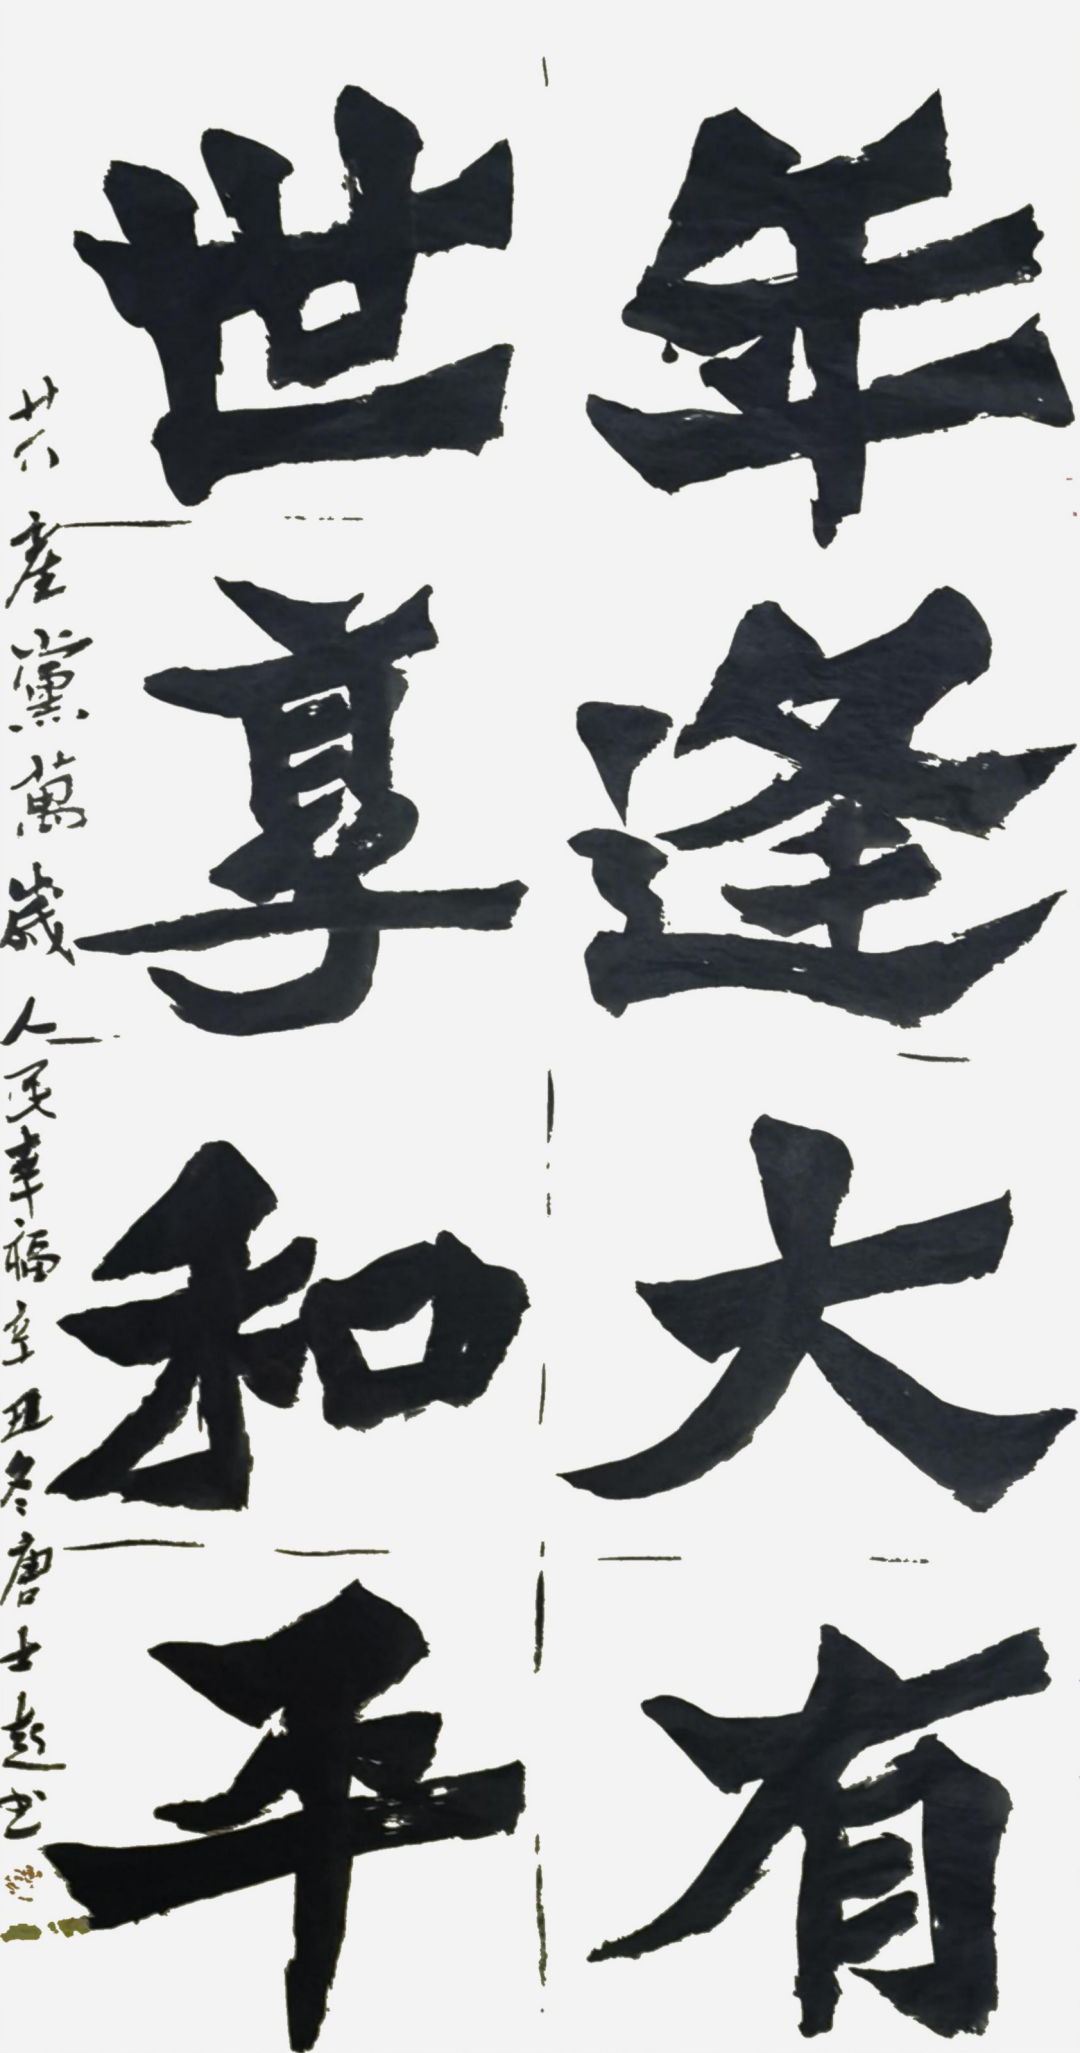 年逢大有
世享和平
共產黨萬歲人民幸福辛丑冬唐士起书